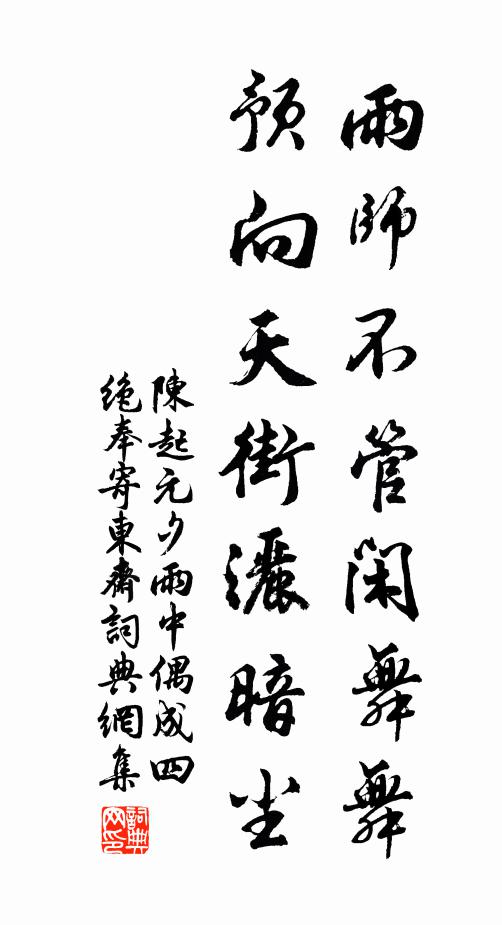 雨師不管閑舞舞
預向天街灑暗尘
陳起元夕雨中偶成四
絶奉寄東齋詞典網集
詞典网印